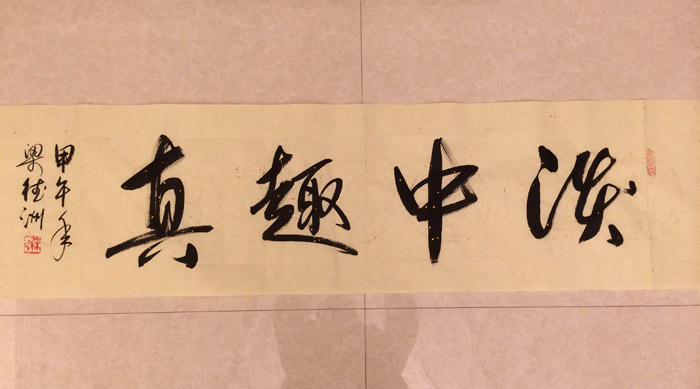 淡中趣真
甲午年
梁德洲